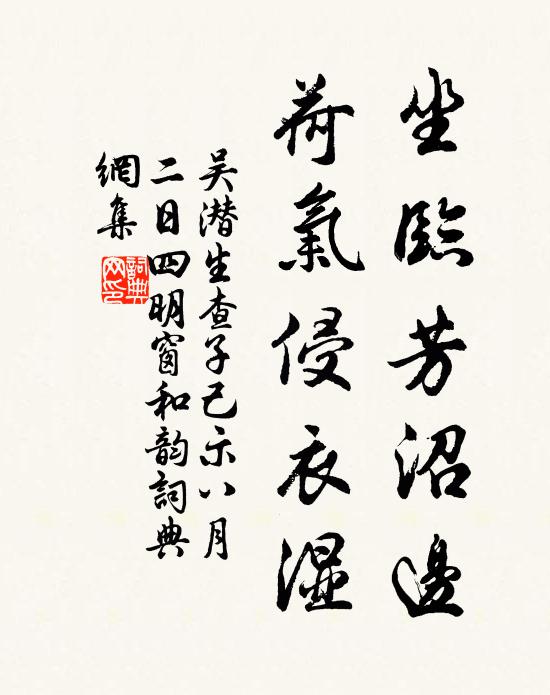 坐臨芳沼邊
荷氣侵衣濕
吴潜生查子己示八月
二日四明窗和韵詞典
網集
詞典網印